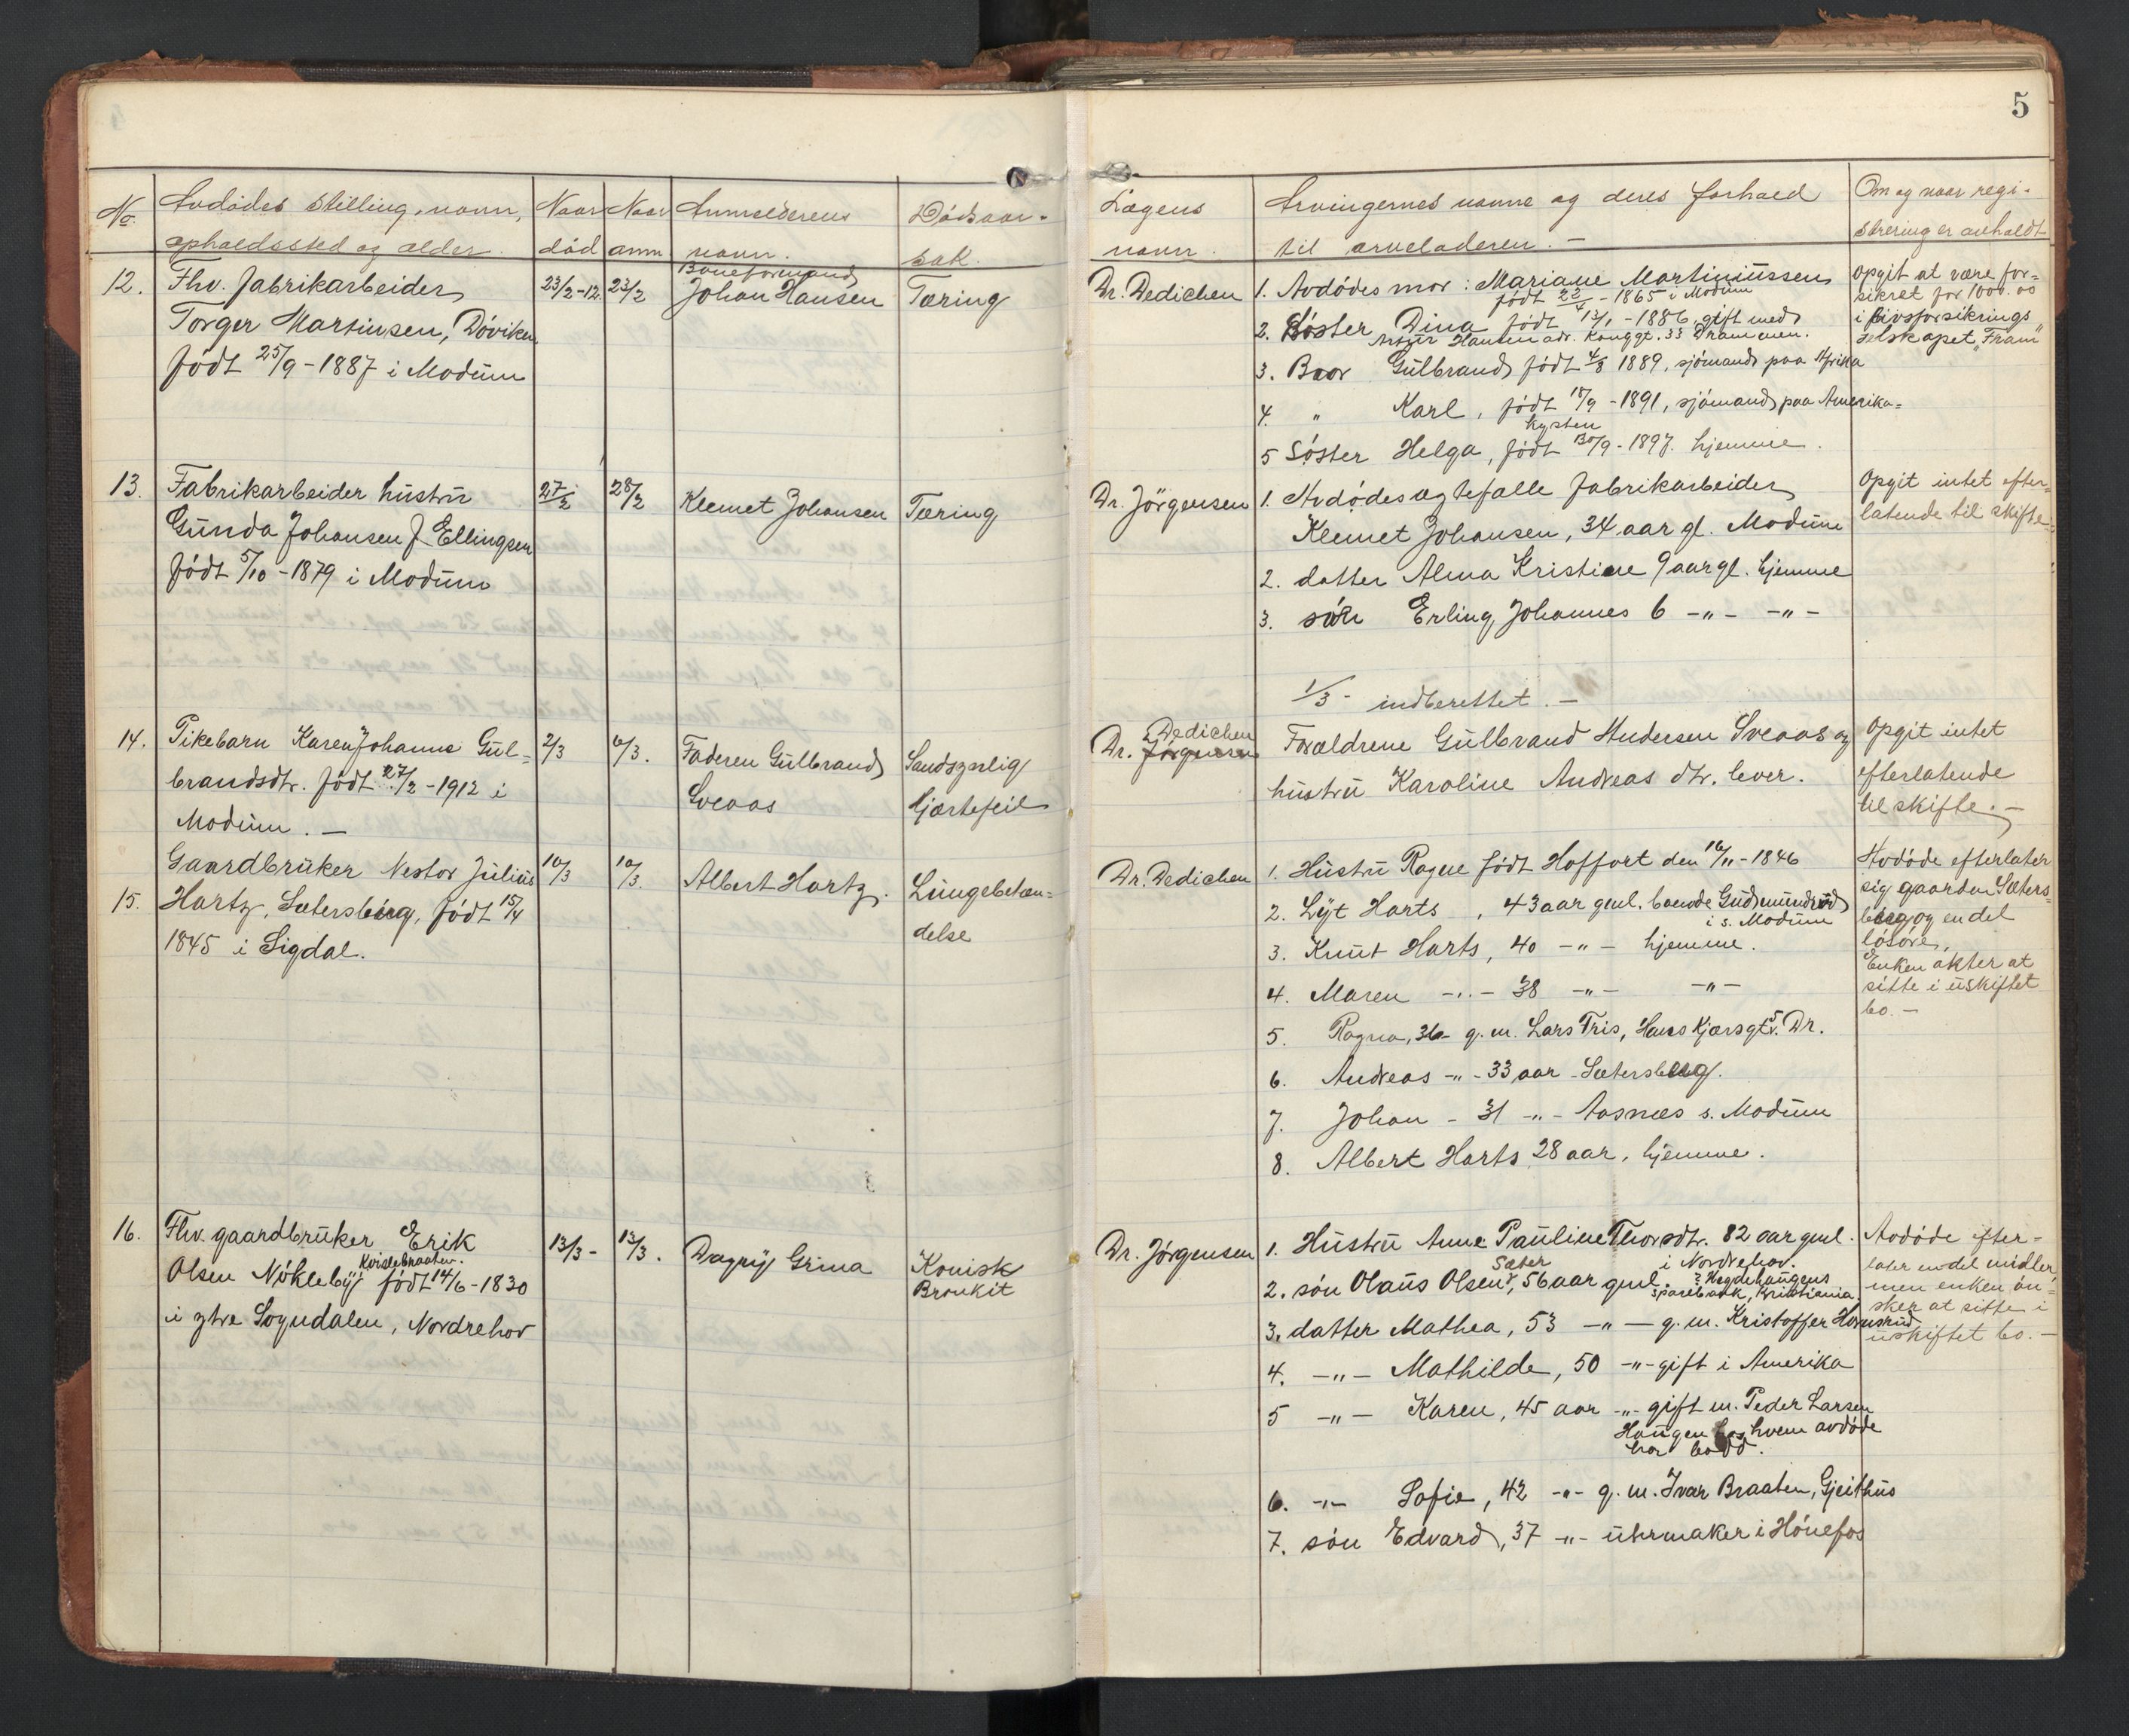 5
No. Avdødes stilling, navn, Naar Naar Anmelderens Dødsaar-
opholdssted og alder. død anm navn. sak.
Lægens Arvingernes navne og deres forhold Om og naar regi-
navn. til arveladeren. — strering er avholdt
12. Fhv. fabrikarbeider 23/2-12. 23/2 Baneformand
Johan Hansen Tæring
Torger Martinsen, Døviken
født 25/9-1887 i Modum
Dr. Dedichen 1. Avdødes mor: Mariane Martiniussen
født 22/4-1865 i Modum
2. Søster Dina født 13/1-1886, gift med
Artur Hansen adr. Konggt. 33 Drammen.
3. Bror Gulbrand født 4/8 1889, sjømand paa Afrika
4. " Karl, født 18/9-1891, sjømand paa Amerika=
kysten
5 Søster Helga, født 30/9-1897. hjemme.
Opgit at være for=
sikret for 1000.00
i livsforsikrings
selskapet "Fram"
13. Fabrikarbeider hustru 27/2 28/2 Klemet Johansen Tæring
Gunda Johansen f. Ellingsen
født 5/10-1879 i Modum
Dr. Jörgensen 1. Avdødes egtefalle fabrikarbeider
Klemet Johansen, 34 aar gl. Modum
2. datter Alma Kristine 9 aar gl. hjemme
3. søn Erling Johannes 6 -"- -"-
1/3- indberettet. —
Opgit intet efter=
latende til skifte
14. Pikebarn Karen Johanne Gul= 2/3 6/3. Faderen Gulbrand Sandsynlig
brandsdtr. født 27/2-1912 i Sveaas hjærtefeil
Modum. —
Dedichen
Dr. Jörgensen Forældrene Gulbrand Andersen Sveaas og
hustru Karoline Andreas dtr. lever.
Opgit intet
efterlatende
til skifte. —
Gaardbruker Nestor Julius 10/3 10/3. Albert Hartz. Lungebetæn=
15. Hartz, Sætersberg, født 15/4 delse
1845 i Sigdal.
Dr. Dedichen 1. Hustru Ragne født Hoffort den 16/11-1846
2. Lyt Harts, 43 aar gml. boende Gudmundrud
i s. Modum
3. Knut Harts, 40 -"- hjemme.
4. Maren -"- 38 -"- -"-
5. Ragna, 36 g. m. Lars Tris, Hans Kjærsgt. 5. Dr.
6. Andreas -"- 33 aar Sætersberg.
7. Johan - 31 -"- Aasnæs s. Modum
8. Albert Harts 28 aar, hjemme.
Avdøde efterlater
sig gaarden Sæters=
berg og en del
løsøre,
Enken akter at
sitte i uskiftet
bo. —
16. Fhv. gaardbruker Erik 13/3- 13/3. Dagny Grina Kronisk
Bronkit
Kvislebraaten.
Olsen Nökleby født 14/6-1830
i ytre Sogndalen, Nordrehov
Dr. Jørgensen 1. Hustru Anne Pauline Thorsdtr. 82 aar gml.
Sæter i Nordrehov.
2. søn Olaus Olsen, 56 aar gml. ? Hegdehaugens
sparebank, Kristiania.
3. datter Mathea, 53 -"- g. m. Kristoffer
4. -"- Mathilde, 50 -"- gift i Amerika
5 -"- Karen, 45 aar -"- gift m. Peder Larsen
Haugen hos hvem avdøde
har bodd.
6. -"- Sofie, 42 -"- g. m. Ivar Braaten, Gjeithus
7. søn Edvard, 37 -"- uhrmaker i Hönefos
Avdøde efter-
later endel midler,
men enken øn=
sker at sitte i
uskiftet bo. —